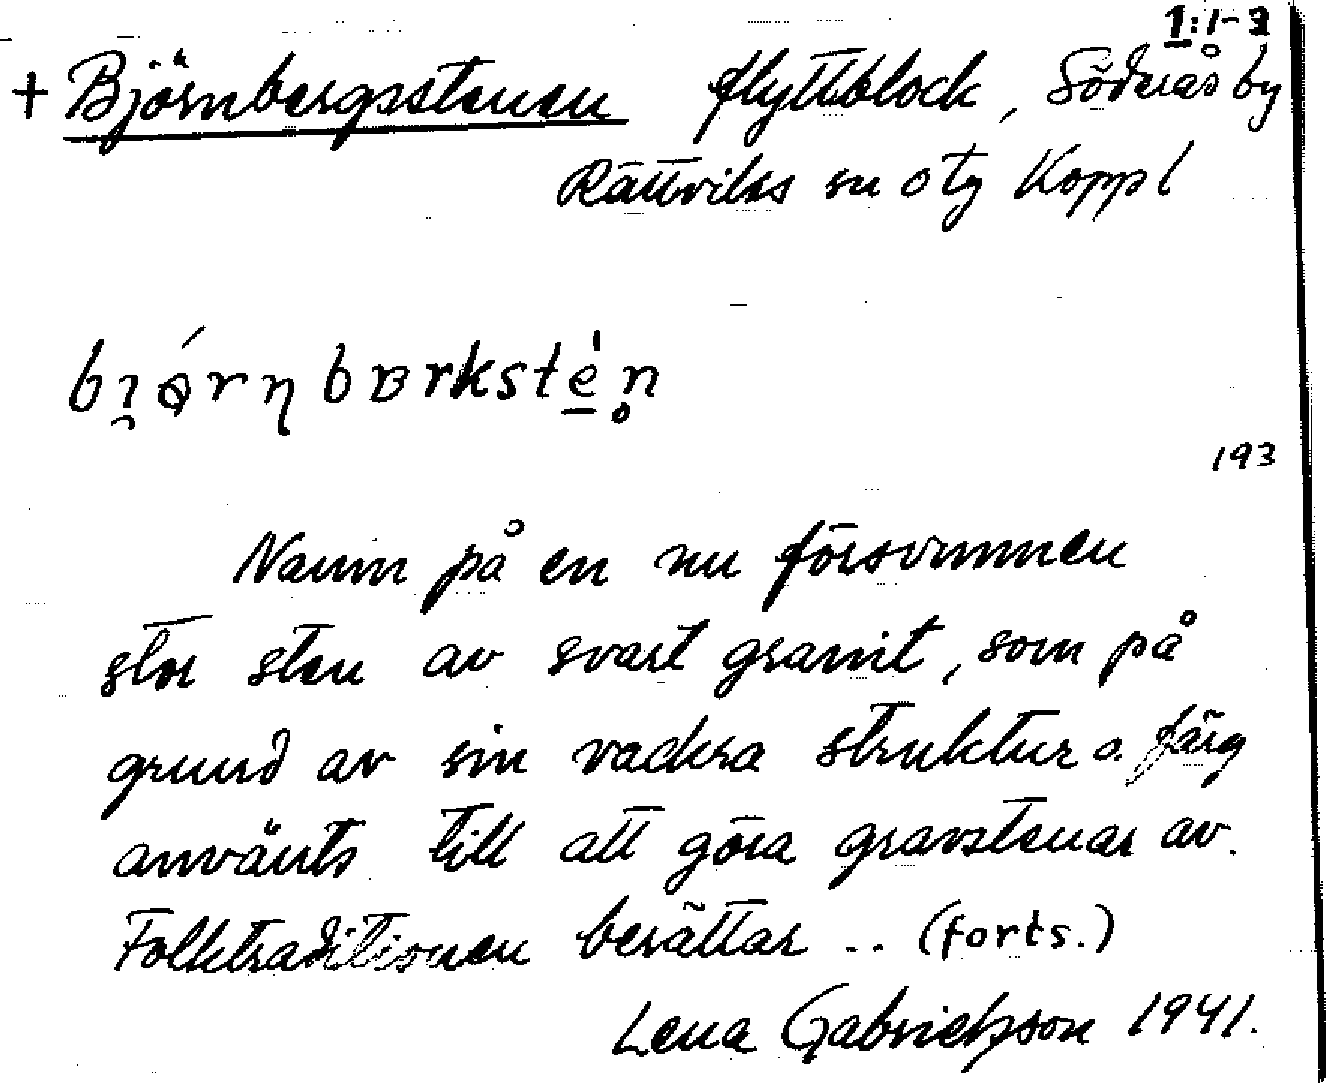 1:1-2
+ Björnbergsstenen flyttblock, Söderås by
Rättviks sn o tg Koppl
193
Namn på en nu försvunnen
stor sten av svart granit, som på
grund av sin vackra struktur o. färg
använts till att göra gravstenar av.
Folktraditionen berättar .. (forts.)
Lena Gabrielsson 1941.